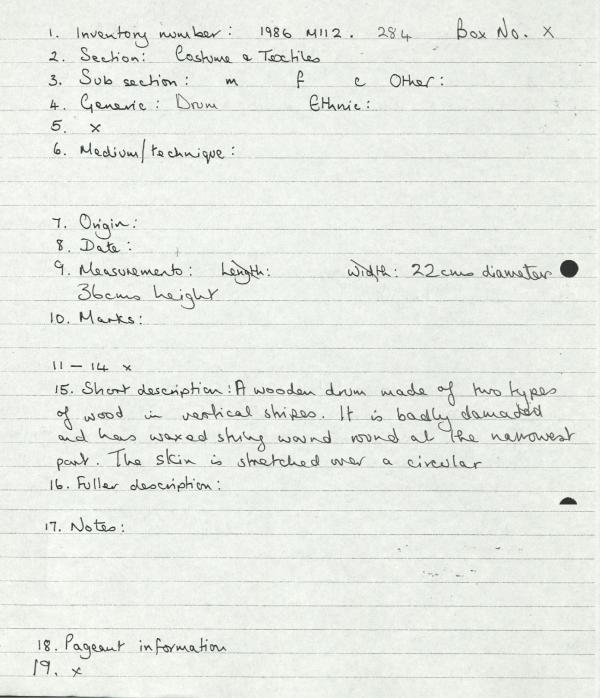 1. Inventory number: 1986 M112. 284 Box No. x
2. Section: Costume & Textiles
3. Sub section: m f c Other:
4. Generic: Drum Ethnic:
5. x
6. Medium/technique:
7. Origin:
8. Date:
9. Measurements: Length: width: 22cms diameter
36cms height
10. Marks:
11 - 14 x
15. Short description: A wooden drum made of two types
of wood in vertical stripes. It is badly damaded
and has waxed string wound round at the narrowest
part. The skin is stretched over a circular
16. Fuller description:
17. Notes:
18. Pageant information
19. x